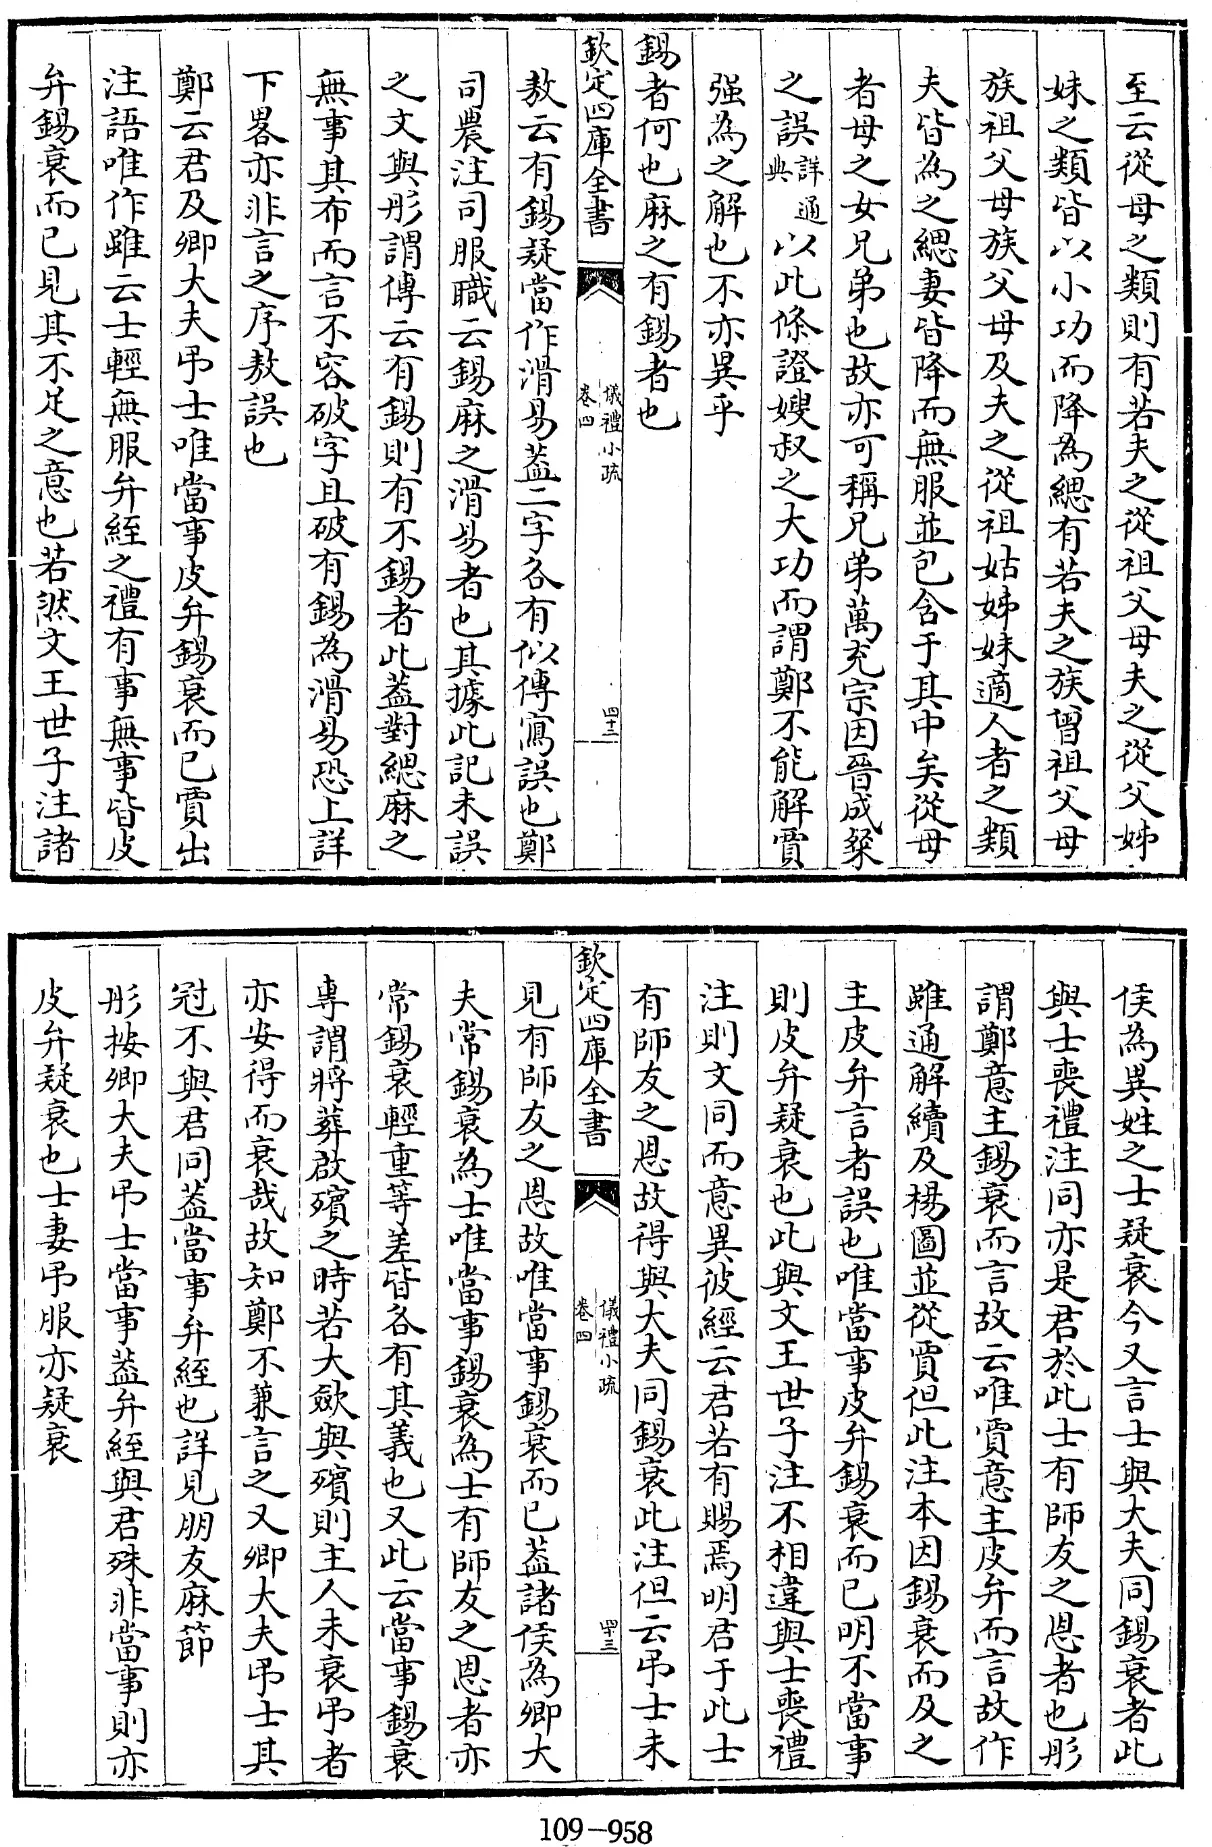 至云從母之類則有若夫之從祖父母夫之從父姊
妹之類皆以小功而降為緦有若夫之族曾祖父母
族祖父母族父母及夫之從祖姑姊妹適人者之類
夫皆為之緦妻皆降而無服並包含于其中矣從母
者母之女兄弟也故亦可稱兄弟萬充宗因晉成粲
之誤詳通典以此條證嫂叔之大功而謂鄭不能解賈
强為之解也不亦異乎
錫者何也麻之有錫者也
欽定四庫全書
儀禮小疏
卷四
四十三
敖云有錫疑當作滑易葢二字各有似傳寫誤也鄭
司農注司服職云錫麻之滑易者也其據此記未誤
之文與彤謂傳云有錫則有不錫者此葢對緦麻之
無事其布而言不容破字且破有錫為滑易恐上詳
下畧亦非言之序敖誤也
鄭云君及卿大夫弔士唯當事皮弁錫衰而已賈出
注語唯作雖云士輕無服弁絰之禮有事無事皆皮
弁錫衰而已見其不足之意也若然文王世子注諸
侯為異姓之士疑衰今又言士與大夫同錫衰者此
與士喪禮注同亦是君於此士有師友之恩者也彤
謂鄭意主錫衰而言故云唯賈意主皮弁而言故作
雖通解續及楊圖並從賈但此注本因錫衰而及之
主皮弁言者誤也唯當事皮弁錫衰而已明不當事
則皮弁疑衰也此與文王世子注不相違與士喪禮
注則文同而意異彼經云君若有賜焉明君于此士
有師友之恩故得與大夫同錫衰此注但云弔士未
欽定四庫全書
儀禮小疏
卷四
四十三
見有師友之恩故唯當事錫衰而已葢諸侯為卿大
夫常錫衰為士唯當事錫衰為士有師友之恩者亦
常錫衰輕重等差皆各有其義也又此云當事錫衰
專謂將葬啟殯之時若大斂與殯則主人未衰弔者
亦安得而衰哉故知鄭不兼言之又卿大夫弔士其
冠不與君同葢當事弁絰也詳見朋友麻節
彤按卿大夫弔士當事葢弁絰與君殊非當事則亦
皮弁疑衰也士妻弔服亦疑衰
109-958